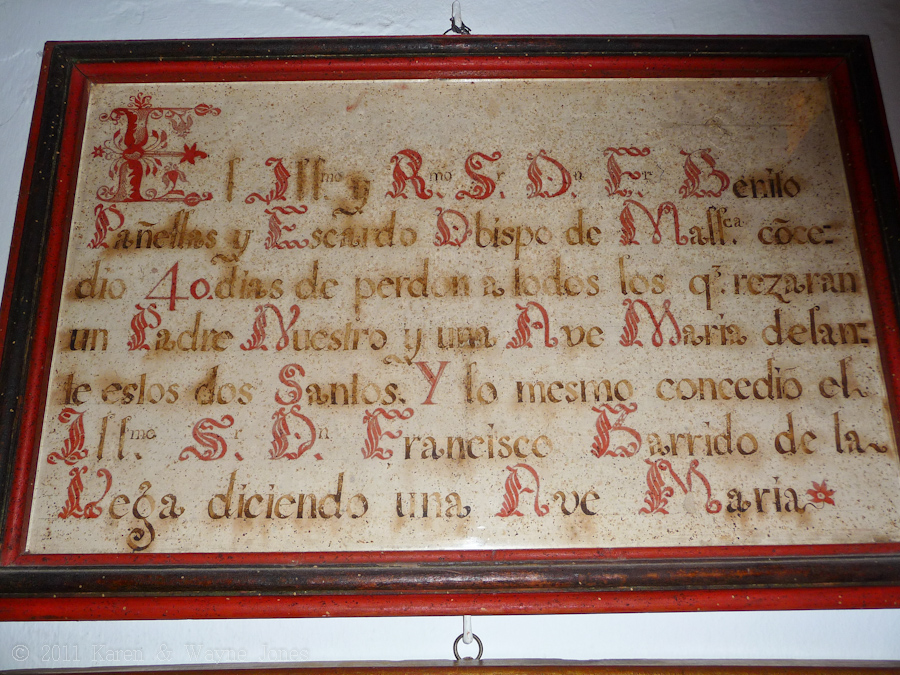 El Jllmo. y Rmo. Sr. Dn. Fr. Benito
Pañellas y Escardo Obispo de Mallca. cõce-
dio 40. dias de perdon a todos los q. rezaran
un Padre Nuestro y una Ave Maria delan-
te estos dos Santos. Y lo mesmo concedio el
Jllmo. Sr. Dn. Francisco Barrido de la
Vega diciendo una Ave Maria
© 2011 Karen & Wayne Jones